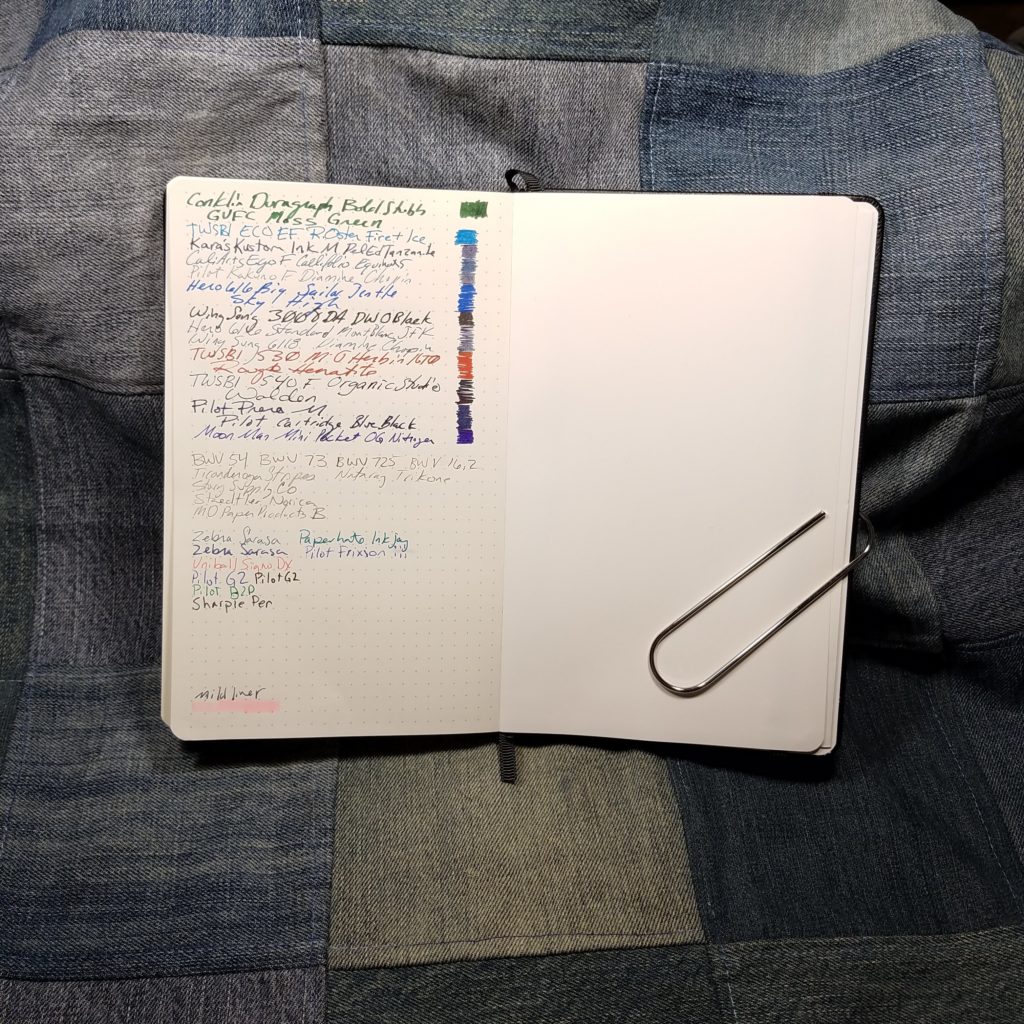 Conklin Duragraph Bold Stub
GVFC Moss Green
TWSBI ECO EF R Oster Fire + Ice
Karas Kustom Ink M Tanzanite
F Callifolio Equinoxe
Pilot Kakuno F Diamine Chopin
Hero 616 Big Sailor Jentle
Sky High
Wing Sung 3008 DA DWO Black
Hero 616 Standard MontBlanc JFK
Wing Sung 618 Diamine Chopin
TWSBI 530 M Herbin 1670
Rouge Hematite
TWSBI 540 F Organic Studio
Walden
Pilot Prera M
Pilot Cartridge Blue Black
Moon Man Mini Pocket OG Nitrogen
BWV 54 BWV 73 BWV 725 BWV 16.2
Ticonderoga Stripes Nataraj Trikone
Supply Co
Staedtler Norica
MO Paper Products B
Zebra Sarasa Papermate Inkjoy
Zebra Sarasa Pilot Frixion
Uniball Signo DX
Pilot G2 Pilot G2
Pilot B2P
Sharpie Pen
mildliner